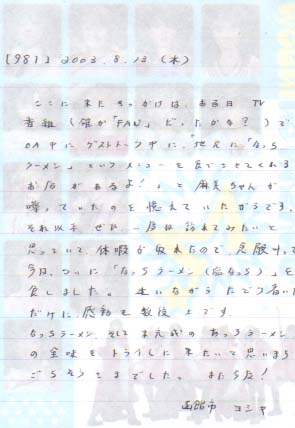 [981] 2003.8.13 (水)
ここに来たきっかけは、ある日 TV
番組(確か「FAN」だったかな?)で
OA中にゲストトーク中に、「地元に「なっち
ラーメン」というメニューを食べさせてくれる
お店があるよ!」と麻美ちゃんが
喋っていたのを憶えていたからです。
それ以来、ぜひ一度は訪れてみたいと
思っていて、休暇が取れたので、急
今日、ついに「なっちラーメン(塩なっち)」を
食しました。迷いながらたどり着いた
だけに、感動も数倍です。
なっちラーメン、そして未完成のあっちラーメン
の全味をトライしに来たいと思います
ごちそうさまでした。また今度!
函館市 ヨシヤ